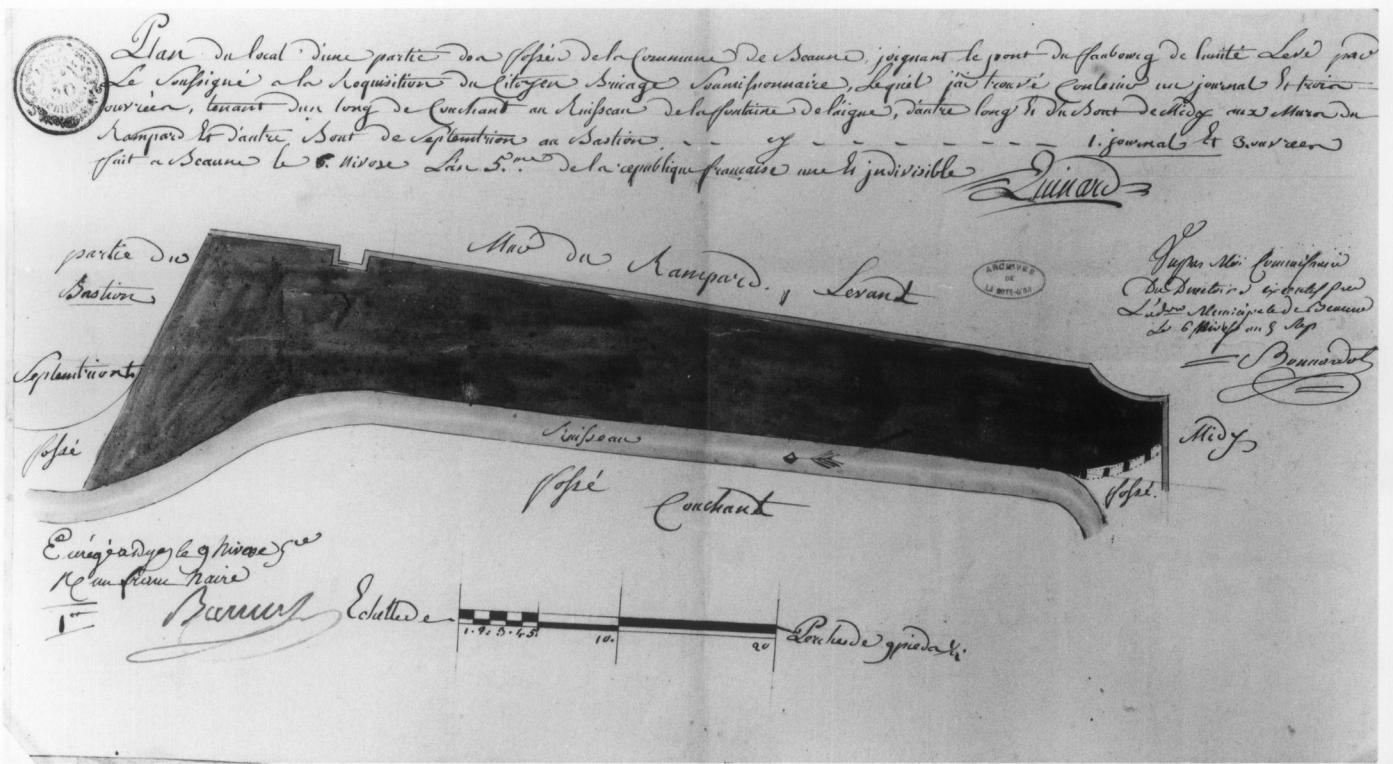 Plan du local d'une partie des fossés de la Commune de Beaune, joignant le pont du faubourg de l'unité Levé par
Le Soussigné a la Requisition du Citoyen Bricage Soumissionnaire, Lequel j'ai trouvé Contenir un journal Et trois
ouvrées, tenant d'un long de Couchant au Ruisseau de la fontaine de l'aigue, d'autre long Et du Bout de Midy aux Murs du
Rampard Et d'autre Bout de Septentrion au Bastion 1. journal Et 3. ouvrées
fait a Beaune le 6. Nivose L'an 5.me de la republique française une Et jndivisible
Quinard
partie du
Bastion
Mur du Rampard. Levant
ARCHIVES
DE
LA COTE-D'OR
Vu par Moi Commissaire
Du Directoire executif pres
L'adon Municipale de Beaune
Le 6 Nivose an 5 Rep
Bonnardot
Septentrion
fossé
Ruisseau
Midy
fossé
Couchant
fossé.
le 9 Nivose 5me
Echelle de
1. 2. 3. 4. 5. 10. 20
Perches de 9 pieds ½